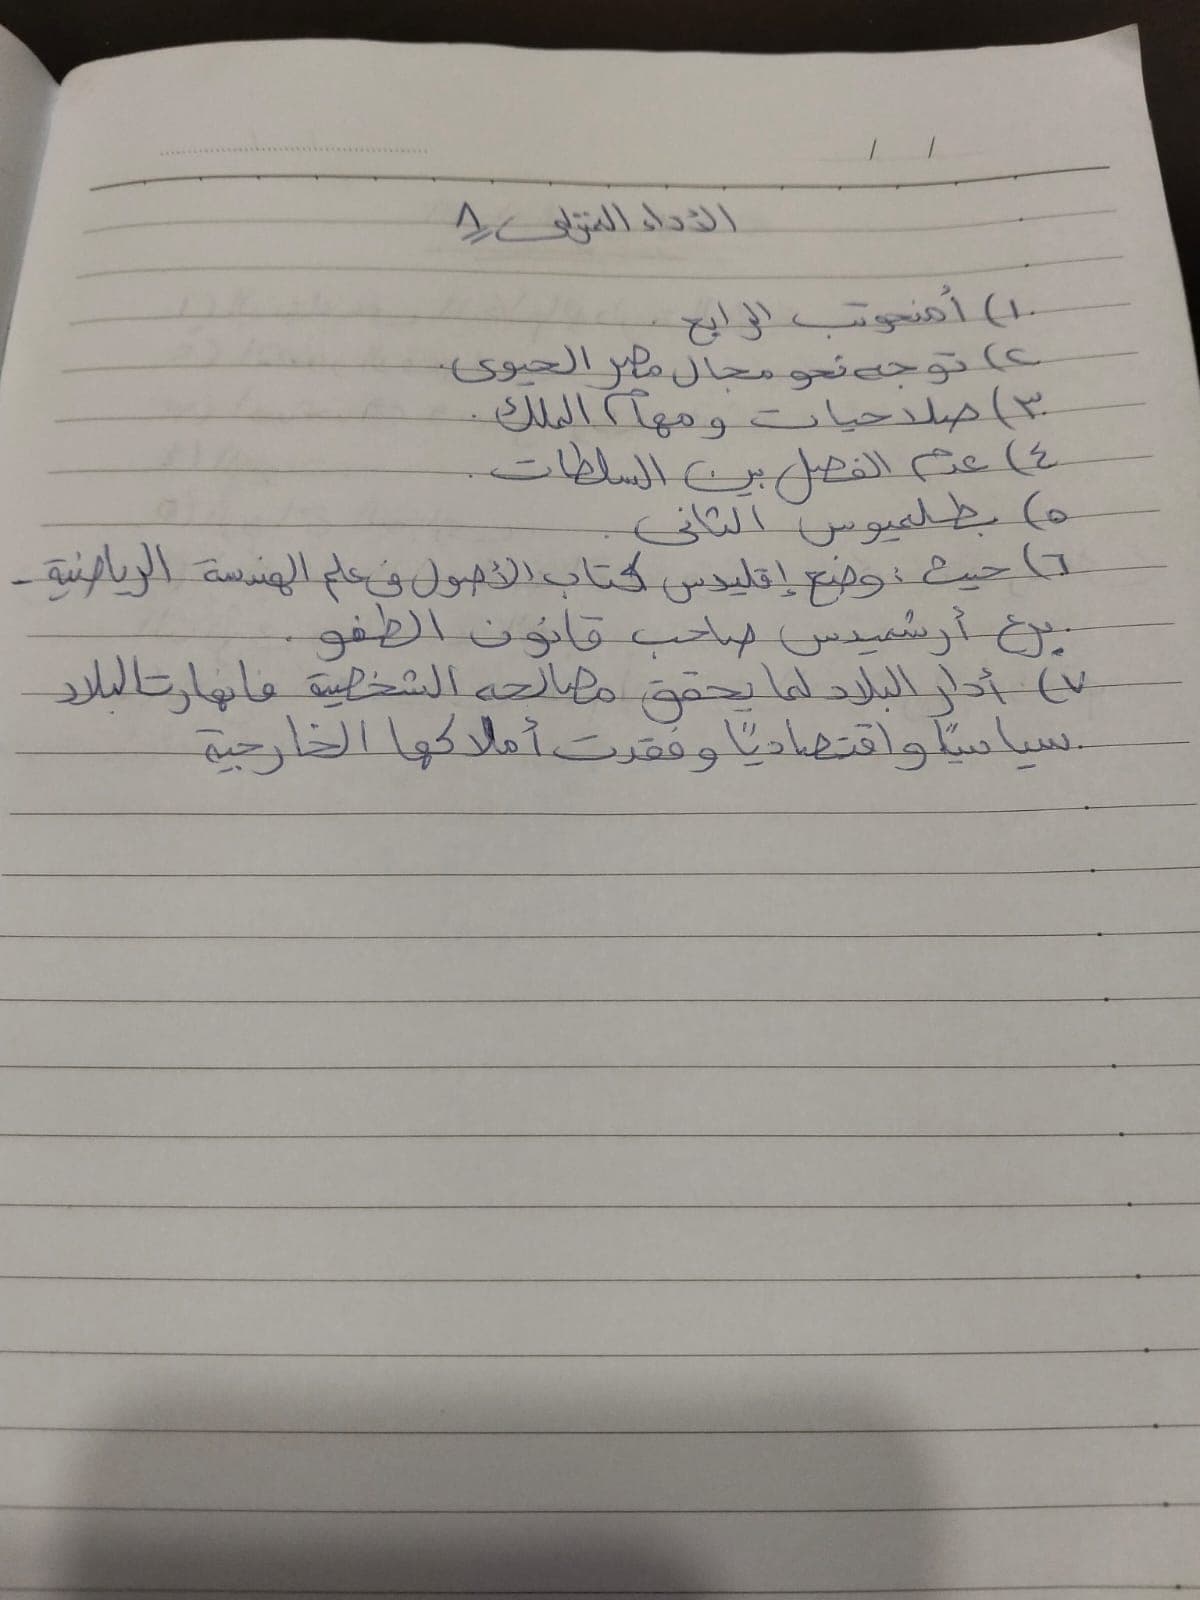 / /
الأداء المنزلى ٨
١) أمنحوتب الرابع .
٢) توجه نحو مجال مصر الحيوى.
٣) صلاحيات ومهام الملك .
٤) عدم الفصل بين السلطات .
٥) بطلميوس الثانى .
٦) حيث : وضع إقليدس كتاب الأصول فى علم الهندسة الرياضية -
برع أرشميدس صاحب قانون الطفو .
٧) أدار البلاد لما يحقق مصالحه الشخصية فانهارت البلاد
سياسيًا واقتصاديًا وفقدت أملاكها الخارجية